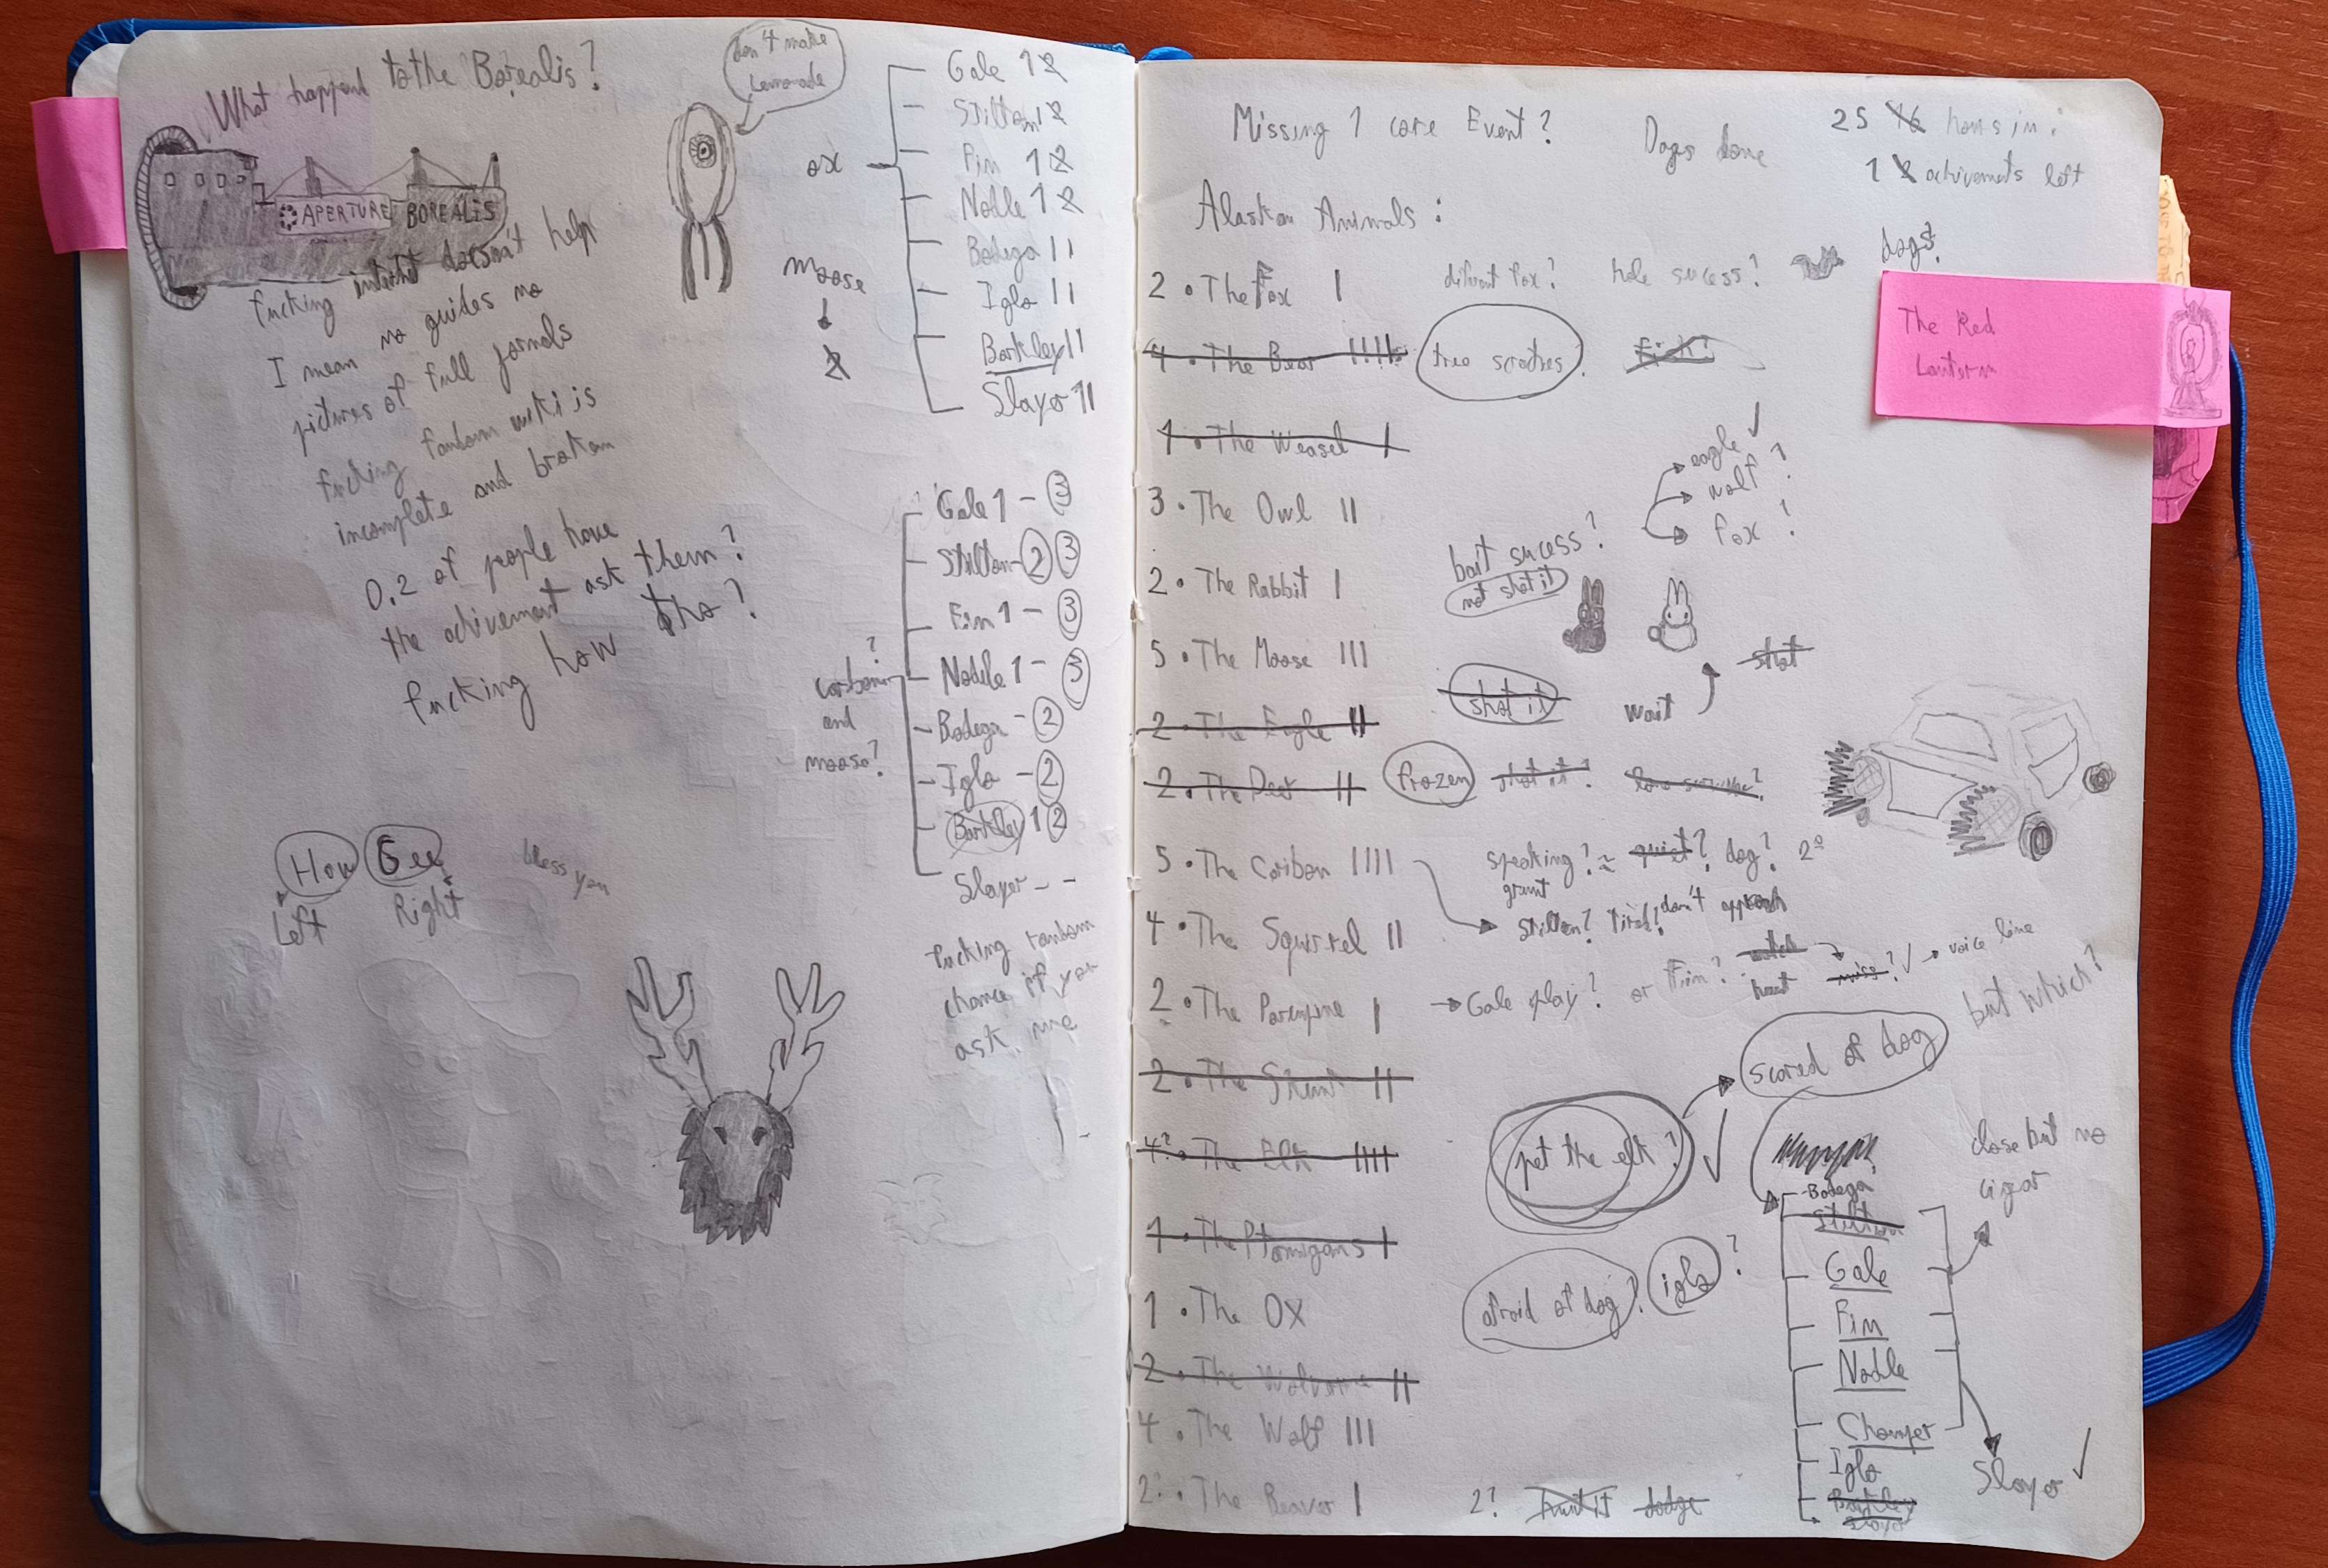 What happend to the Borealis?
APERTURE BOREALIS
don't make
lemonade
fucking doesn't help
I mean no guides no
pictures of full jornals
fucking fandom wiki is
incomplete and broken
0.2 of people have
the achivement ask them?
fucking how tho?
ox
Gale 1 2
Stilton 1 2
Fin 1 2
Nodle 1 2
Bodega 11
Iglo 11
Barkley 11
Slayer 11
moose
2
caribou ?
and
moose?
Gale 1 - 3
Stilton - 2 3
Fin 1 - 3
Nodle 1 - 3
Bodega - 2
Iglo - 2
Barkley 1 2
Slayer - -
fucking random
chance if you
ask me
How Gee
Left Right
bless you
Missing 1 core Event?
Dogs done
25 16 hours in:
1 2 achivements left
Alaskan Animals:
2 • The Fox I difrent fox? hole sucess? dogs?
The Red
Lantern
4 • The Bear IIII tree scratches? fish?
1 • The Weasel I
3 • The Owl II
eagle ✓
wolf ?
fox ?
2 • The Rabbit I
bait sucess?
not shot it
5 • The Moose III
shot
wait
2 • The Eagle II shot it
2 • The Deer II frozen shot it?
5 • The Caribou IIII speaking? ≈ quiet? dog? 2º
grunt
Stilton? tired? don't approach
4 • The Squirrel II
2 • The Porcupine I → Gale play? or Fin? hunt miss? ✓ → voice line
but which?
2 • The II
scared of dog
4? • The Elk IIII pet the elk? ✓
1 • The Ptarmigans I
1 • The Ox afraid of dog? iglo ?
2 • The Wolverine II
4 • The Wolf III
2? • The Beaver I 2? hunt it dodge
Bodega
Stilton
Gale
Fin
Nodle
Chomper
Iglo
Barkley
close but no
cigar
Slayer ✓